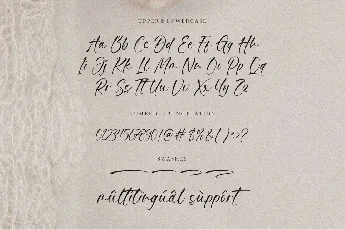 UPPER & LOWERCASE
Aa Bb Cc Dd Ee Ff Gg Hh
Ii Jj Kk Ll Mm Nn Oo Pp Qq
Rr Ss Tt Uu Vv Xx Yy Zz
NUMBER & PUNCTUATION
0123456789!@#$%&()<>?
SWASHES
múltilingúâl sùppört